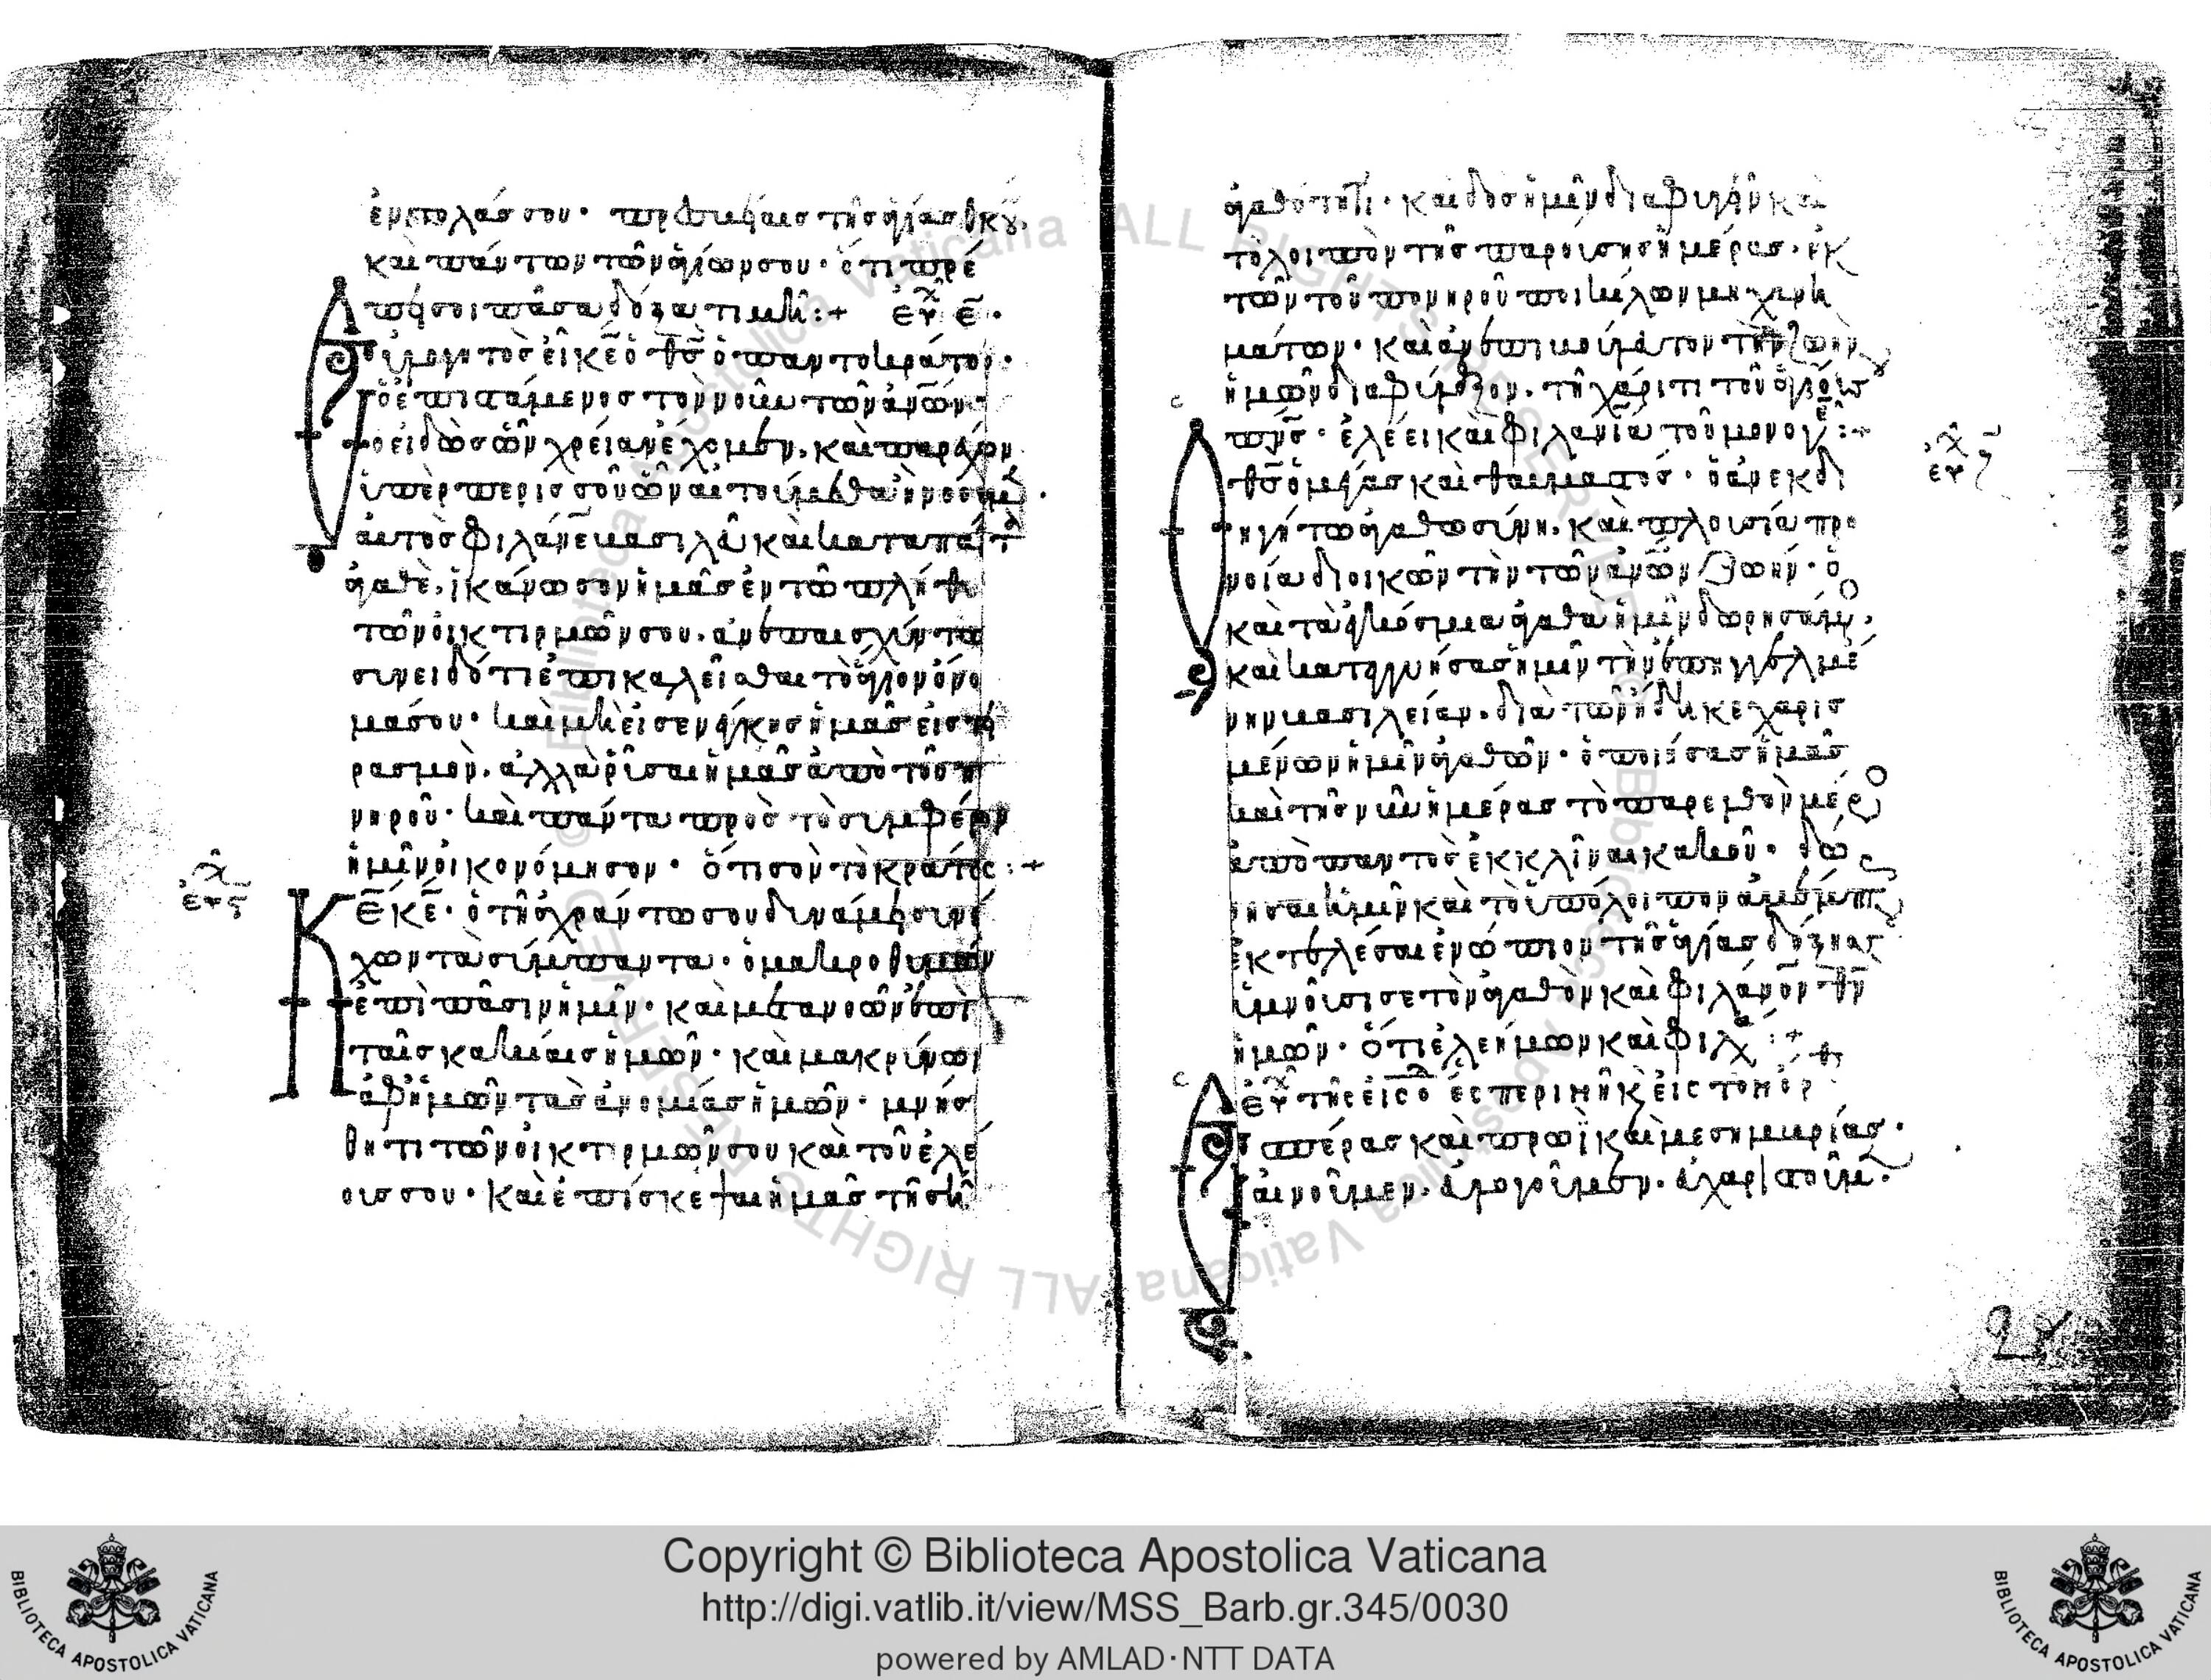 ἐντολάς σου· πρεσβείαις τῆς ἁγίας θκου
καὶ πάντων τῶν ἁγίων σου· ὅτι πρέ
πει σοι πᾶσα δόξα τιμή :+ εὐχ ε.
Εὐλογητὸς εἶ κε ὁ θς ὁ παντοκράτωρ·
ὁ ἐπιστάμενος τὸν νοῦν τῶν ανων·
ὁ εἰδὼς ὧν χρείαν ἔχομεν· καὶ παρέχων
ὑπὲρ περισσοῦ ὧν αἰτούμεθα ἢ νοοῦμ.
αὐτὸς φιλανε βασιλεῦ καὶ
ἀγαθὲ, ἱκάνωσον ἡμᾶς ἐν τῶ πλήθει
τῶν οἰκτιρμῶν σου· ἀνεπαισχύντω
συνειδότι ἐπικαλεῖσθαι τὸ ἅγιον ὄνο
μά σου· καὶ μὴ εἰσενέγκης ἡμᾶς εἰς πει
ρασμὸν· ἀλλὰ ῥῦσαι ἡμᾶς ἀπὸ τοῦ πο
νηροῦ· καὶ πάντα πρὸς τὸ συμφέρον
ἡμῖν οἰκονόμησον· ὅτι σὸν τὸ κράτος :+
εὐχ ϛ
Κε κε· ὁ τῆ ἀχράντω σου δυνάμει συνέ
χων τὰ σύμπαντα· ὁ μακροθυμῶν
ἐπὶ πᾶσιν ἡμῖν· καὶ μετανοῶν ἐπὶ
ταῖς κακίαις ἡμῶν· καὶ μακρύνων
ἀφ' ἡμῶν τὰς ἀνομίας ἡμῶν· μνήσ
θητι τῶν οἰκτιρμῶν σου καὶ τοῦ ἐλέ
ους σου· καὶ ἐπίσκεψαι ἡμᾶς τῆ σῆ
ἀγαθότητι· καὶ δὸς ἡμῖν διαφυγεῖν καὶ
τὸ λοιπὸν τῆς παρούσης ἡμέρας· ἐκ
τῶν τοῦ πονηροῦ ποικίλων μηχανη
μάτων· καὶ ἀνεπιβούλευτον τὴν ζωὴν
ἡμῶν διαφύλαξον· τῆ χάριτι τοῦ ἁγίου
πνς· ἐλέει καὶ φιλανία τοῦ μονογ :+
εὐχ ζ
Ο θς ὁ μέγας καὶ θαυμαστός· ὁ ἀνεκδι
ηγήτω ἀγαθωσύνη· καὶ πλουσία προ
νοία διοικῶν τὴν τῶν ανων ζωήν· ὁ
καὶ τὰ ἐγκόσμια ἀγαθὰ ἡμῖν δωρησάμ·
καὶ κατεγγυήσας ἡμῖν τὴν ἐπηγγελμέ
νην βασιλείαν· διὰ τῶν ἤδη κεχαρισ
μένων ἡμῖν ἀγαθῶν· ὁ ποιήσας ἡμᾶς
καὶ τῆς νῦν ἡμέρας τὸ παρελθὸν μέρος
ἀπὸ παντὸς ἐκκλῖναι κακοῦ· δώ
ρησαι ἡμῖν καὶ τὸ ὑπόλοιπον ἀμέμπτως
ἐκτελέσαι ἐνώπιον τῆς ἁγίας δόξης
ὑμνοῦσί σε τὸν ἀγαθὸν καὶ φιλάνον θν
ἡμῶν· ὅτι ἐλεήμων καὶ φιλ :+
Εὐχ τῆς εἰσό
Εσπέρας καὶ πρωῒ καὶ μεσημβρίας·
αἰνοῦμεν· εὐλογοῦμεν· εὐχαριστοῦμ·
Copyright © Biblioteca Apostolica Vaticana
http://digi.vatlib.it/view/MSS_Barb.gr.345/0030
powered by AMLAD·NTT DATA
BIBLIOTECA APOSTOLICA VATICANA
BIBLIOTECA APOSTOLICA VATICANA